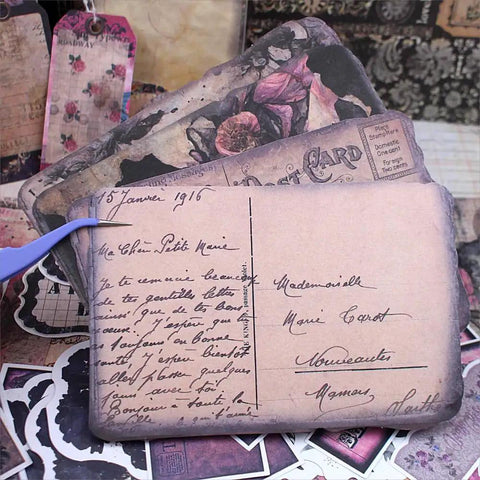 ROADWAY
Post Card
Place
Stamp Here
Domestic
One Cent
For sign
Two cents
15 Janvier 1916
Ma Chère Petite Marie
Je te remercie beaucoup
de tes gentilles lettres
ainsi que de tes bons
voeux. J'espère que tu
es toujours en bonne
santé. J'espère bientôt
aller passer quelques
jours avec toi.
Bonjour à toute la
famille
qui t'aime
passage
Mademoiselle
Marie Carot
Nouveautés
Mamers
Sarthe